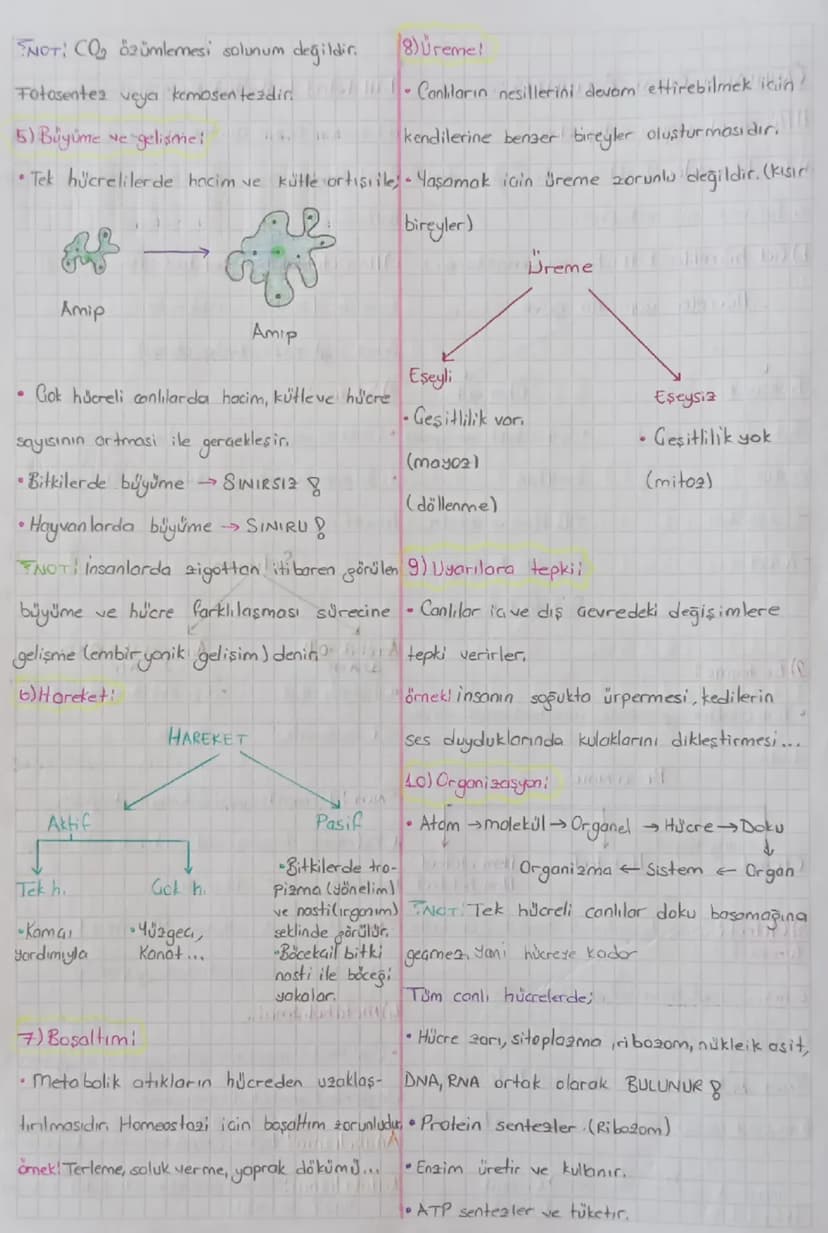 NOT! CO₂ özümlemesi solunum değildir.
Fotosentez veya kemosentezdir.
5) Büyüme ve gelişme:
• Tek hücrelilerde hacim ve kütle artışı ile;
Amip
Amip
• Çok hücreli canlılarda hacim, kütle ve hücre
sayısının artması ile gerçekleşir.
• Bitkilerde büyüme → SINIRSIZ!
• Hayvanlarda büyüme → SINIRLI!
NOT! İnsanlarda zigottan itibaren görülen
büyüme ve hücre farklılaşması sürecine
gelişme (embiryonik gelişim) denir.
6) Hareket:
HAREKET
Aktif
Pasif
Tek h.
Çok h.
• Kamçı
yardımıyla
• Yüzgeç,
Kanat...
• Bitkilerde tro-
pizma (yönelim)
ve nasti (ırganım)
şeklinde görülür.
• Böcekçil bitki
nasti ile böceği
yakalar.
7) Boşaltım:
• Metabolik atıkların hücreden uzaklaş-
tırılmasıdır. Homeostazi için boşaltım zorunludur.
örnek! Terleme, soluk verme, yaprak dökümü...
8) Üreme!
• Canlıların nesillerini devam ettirebilmek için
kendilerine benzer bireyler oluşturmasıdır.
• Yaşamak için üreme zorunlu değildir. (kısır
bireyler)
Üreme
Eşeyli
• Çeşitlilik var.
(mayoz)
(döllenme)
Eşeysiz
• Çeşitlilik yok
(mitoz)
9) Uyarılara tepki:
• Canlılar iç ve dış çevredeki değişimlere
tepki verirler.
örnek! insanın soğukta ürpermesi, kedilerin
ses duyduklarında kulaklarını dikleştirmesi...
10) Organizasyon:
• Atom → molekül → Organel → Hücre → Doku
Organizma ← Sistem ← Organ
NOT! Tek hücreli canlılar doku basamağına
geçmez, yani hücreye kadar
Tüm canlı hücrelerde;
• Hücre zarı, sitoplazma, ribozom, nükleik asit,
DNA, RNA ortak olarak BULUNUR!
• Protein sentezler. (Ribozom)
• Enzim üretir ve kullanır.
• ATP sentezler ve tüketir.